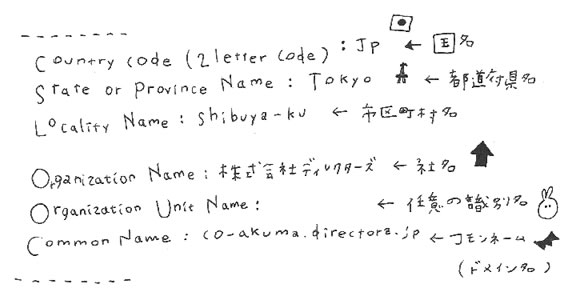 --------
Country code (2 letter code) : Jp ← 国名
State or Province Name : Tokyo ← 都道府県名
Locality Name : Shibuya-ku ← 市区町村名
Organization Name : 株式会社ディレクターズ ← 社名
Organization Unit Name : ← 任意の識別名
Common Name : co-akuma.directorz.jp ← コモンネーム
(ドメイン名)
--------